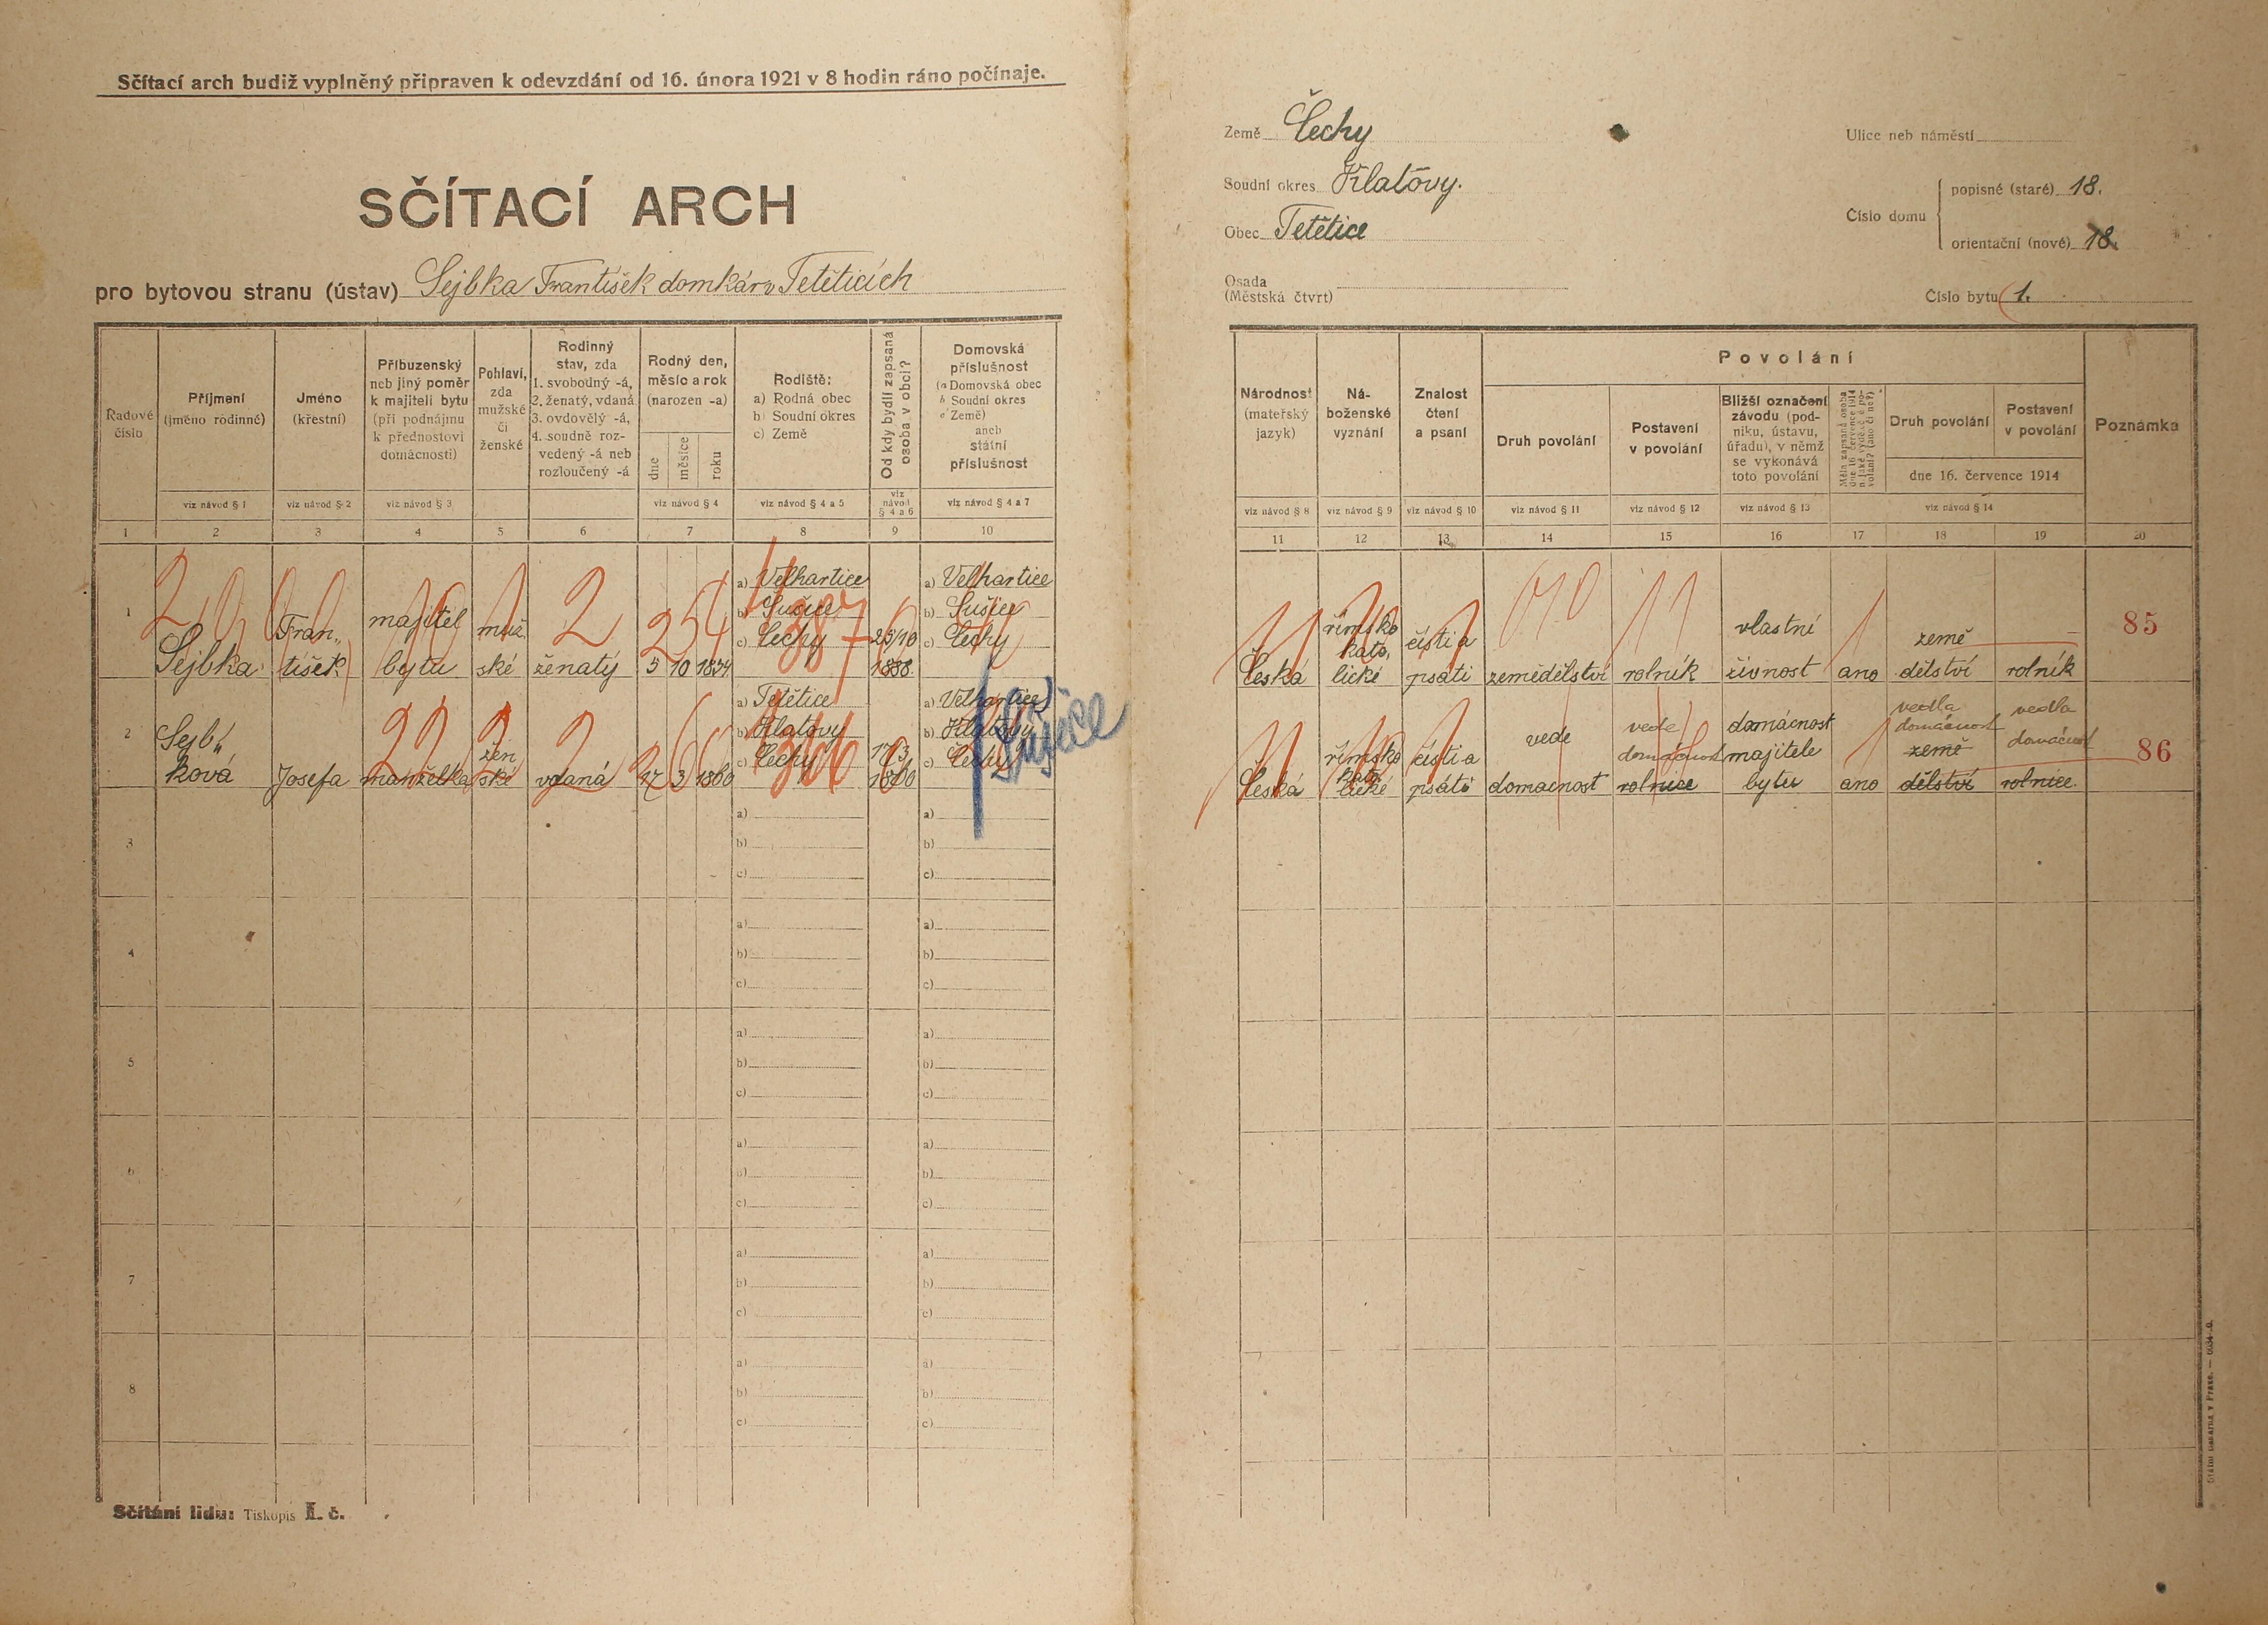 Sčítací arch budiž vyplněný připraven k odevzdání od 16. února 1921 v 8 hodin ráno počínaje.
SČÍTACÍ ARCH
pro bytovou stranu (ústav) Sejbka František domkář v Tetěticích
Země Čechy
Soudní okres Klatovy.
Obec Tetětice
Osada
(Městská čtvrt)
Ulice neb náměstí
Číslo domu
popisné (staré) 18.
orientační (nové) 18.
Číslo bytu 1.
Řadové číslo
Příjmení (jméno rodinné)
Jméno (křestní)
Příbuzenský neb jiný poměr k majiteli bytu (při podnájmu k přednostovi domácnosti)
Pohlaví, zda mužské či ženské
Rodinný stav, zda 1. svobodný -á, 2. ženatý, vdaná 3. ovdovělý -á, 4. soudně rozvedený -á neb rozloučený -á
Rodný den, měsíc a rok (narozen -a)
dne měsíce roku
Rodiště: a) Rodná obec b) Soudní okres c) Země
Od kdy bydlí zapsaná osoba v obci?
Domovská příslušnost (a Domovská obec b Soudní okres c Země) aneb státní příslušnost
viz návod § 1 viz návod § 2 viz návod § 3 viz návod § 4 viz návod § 4 a 5 viz návod § 4 a 6 viz návod § 4 a 7
1 2 3 4 5 6 7 8 9 10
Národnost (mateřský jazyk)
Náboženské vyznání
Znalost čtení a psaní
Povolání
Druh povolání
Postavení v povolání
Bližší označení závodu (podniku, ústavu, úřadu), v němž se vykonává toto povolání
Měla zapsaná osoba dne 16. července 1914 nějaké výdělečné povolání? (ano či ne?)
Druh povolání
Postavení v povolání
dne 16. července 1914
Poznámka
viz návod § 8 viz návod § 9 viz návod § 10 viz návod § 11 viz návod § 12 viz návod § 13 viz návod § 14
11 12 13 14 15 16 17 18 19 20
1 Sejbka František majitel bytu mužské ženatý 5 10 1854
a) Velhartice b) Sušice c) Čechy
25/10 1888.
a) Velhartice b) Sušice c) Čechy
Česká římsko katolické čísti a psáti zemědělství rolník vlastní živnost ano zemědělství rolník 85
2 Sejbková Josefa manželka ženské vdaná 17 3 1860
a) Tetětice b) Klatovy c) Čechy
17/3 1860
a) Velhartice b) Klatovy c) Čechy
Sušice
Česká římsko katolické čísti a psáti vede domacnost vede domácnost rolnice domácnost majitele bytu ano vedla domácnost zemědělství vedla domácnost rolnice. 86
3 a) b) c) a) b) c)
4 a) b) c) a) b) c)
5 a) b) c) a) b) c)
6 a) b) c) a) b) c)
7 a) b) c) a) b) c)
8 a) b) c) a) b) c)
Sčítání lidu: Tiskopis I. č.
Státní tiskárna v Praze.